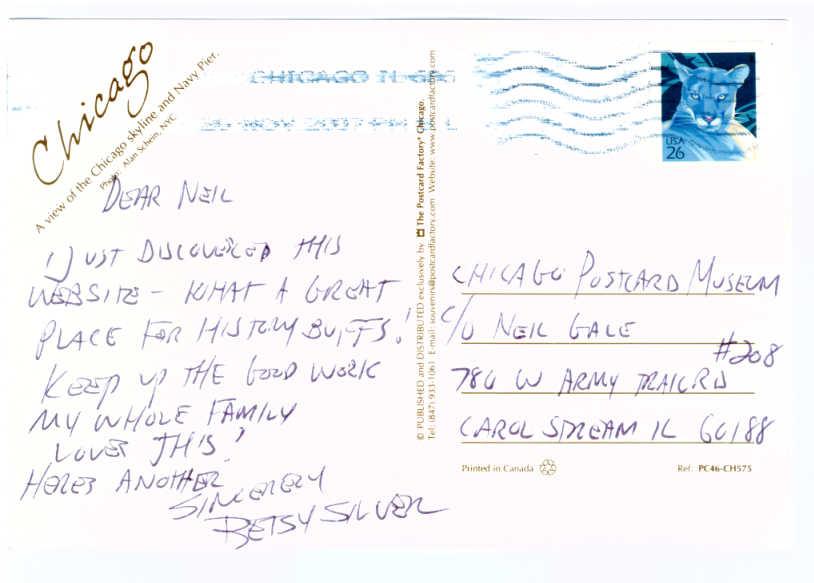 Chicago
A view of the Chicago skyline and Navy Pier.
Photo: Alan Schein, NYC
CHICAGO IL 606
26 NOV 2007 PM
USA
26
DEAR NEIL
I JUST DISCOVERED THIS
WEBSITE - WHAT A GREAT
PLACE FOR HISTORY BUFFS!
KEEP UP THE GOOD WORK
MY WHOLE FAMILY
LOVES THIS!
HERES ANOTHER
SINCERELY
BETSY SILVER
© PUBLISHED and DISTRIBUTED exclusively by The Postcard Factory® Chicago.
Tel: (847) 933-1061 E-mail: souvenirs@postcardfactory.com Website: www.postcardfactory.com
CHICAGO POSTCARD MUSEUM
C/O NEIL GALE
#208
786 W ARMY TRAIL RD
CAROL STREAM IL 60188
Printed in Canada
Ref: PC46-CH575